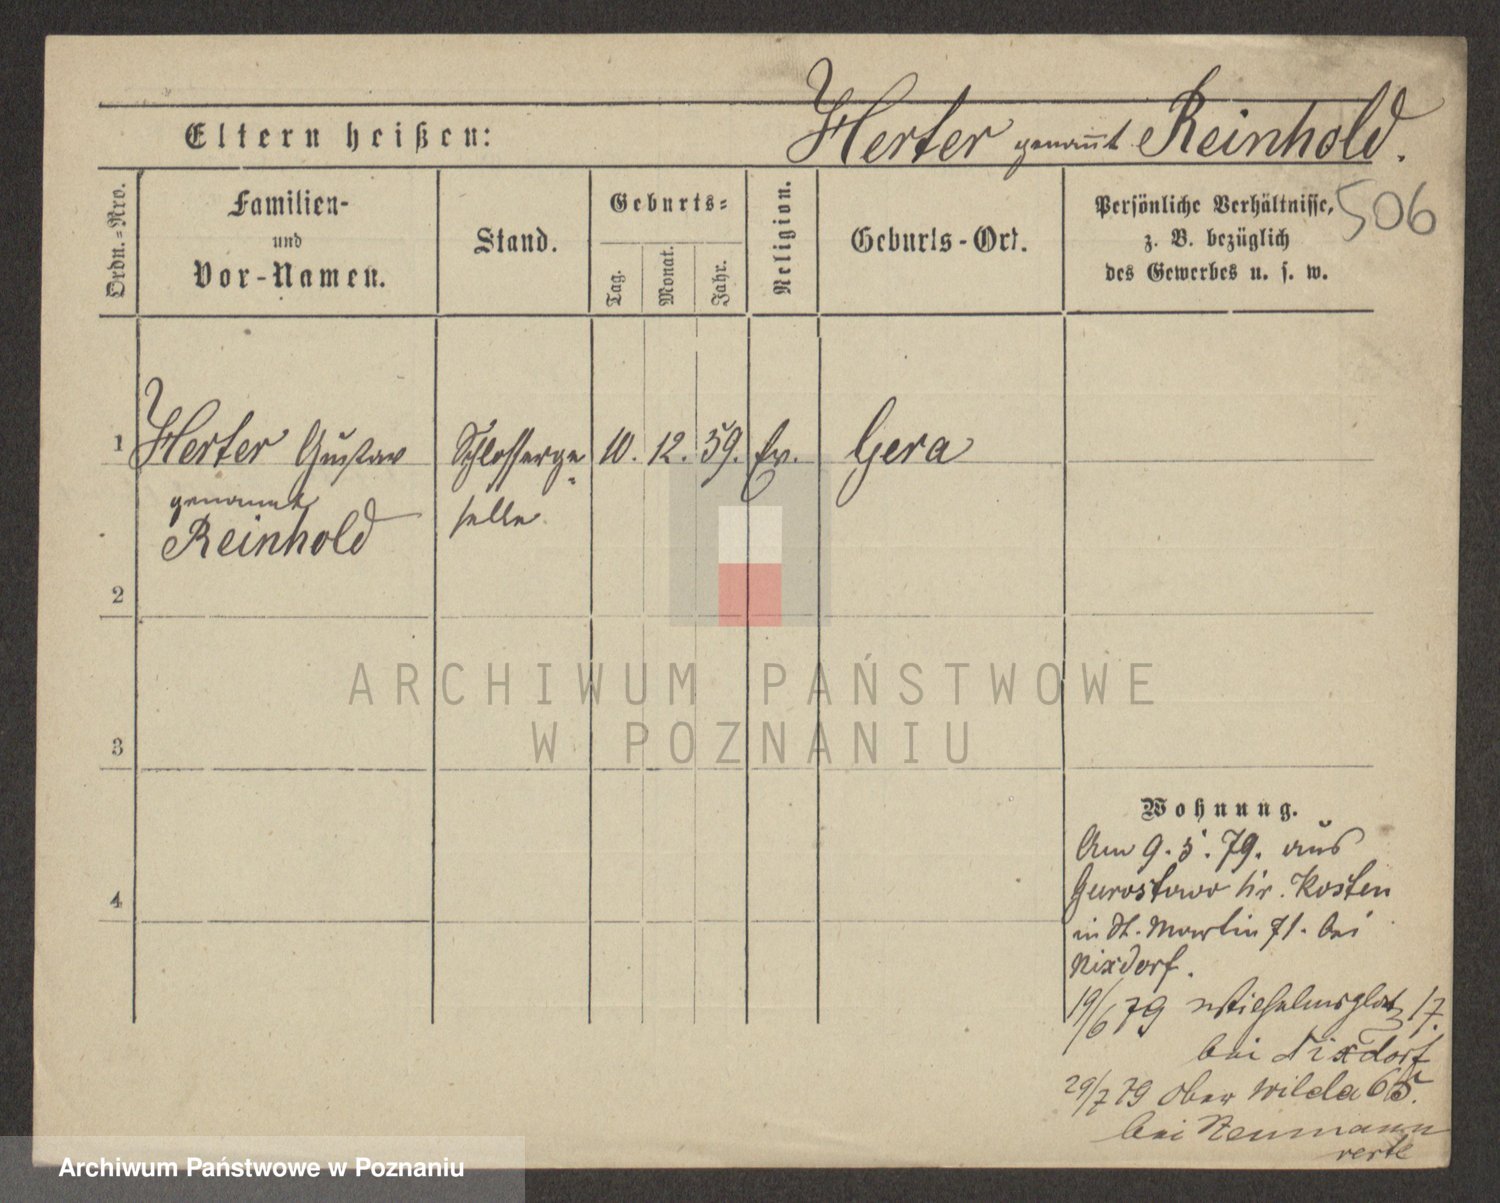 Eltern heißen:
Herter genannt Reinhold.
506
Ordn.-Nro.
Familien-
und
Vor-Namen.
Stand.
Geburts-
Tag.
Monat.
Jahr.
Religion.
Geburts-Ort.
Persönliche Verhältnisse,
z. B. bezüglich
des Gewerbes u. s. w.
1 Herter Gustav Schlosserge- 10. 12. 59. Ev. Gera
genannt selle
Reinhold
2
3
4
ARCHIWUM PAŃSTWOWE
W POZNANIU
Wohnung.
Am 9. 5. 79. aus
Gurostowo Kr. Kosten
in St. Martin 71. bei
Nixdorf.
19/6 79 Wilhelmsplatz 17.
bei Nixdorf
29/7 79 Ober Wilda 65.
bei Neumann
verte
Archiwum Państwowe w Poznaniu